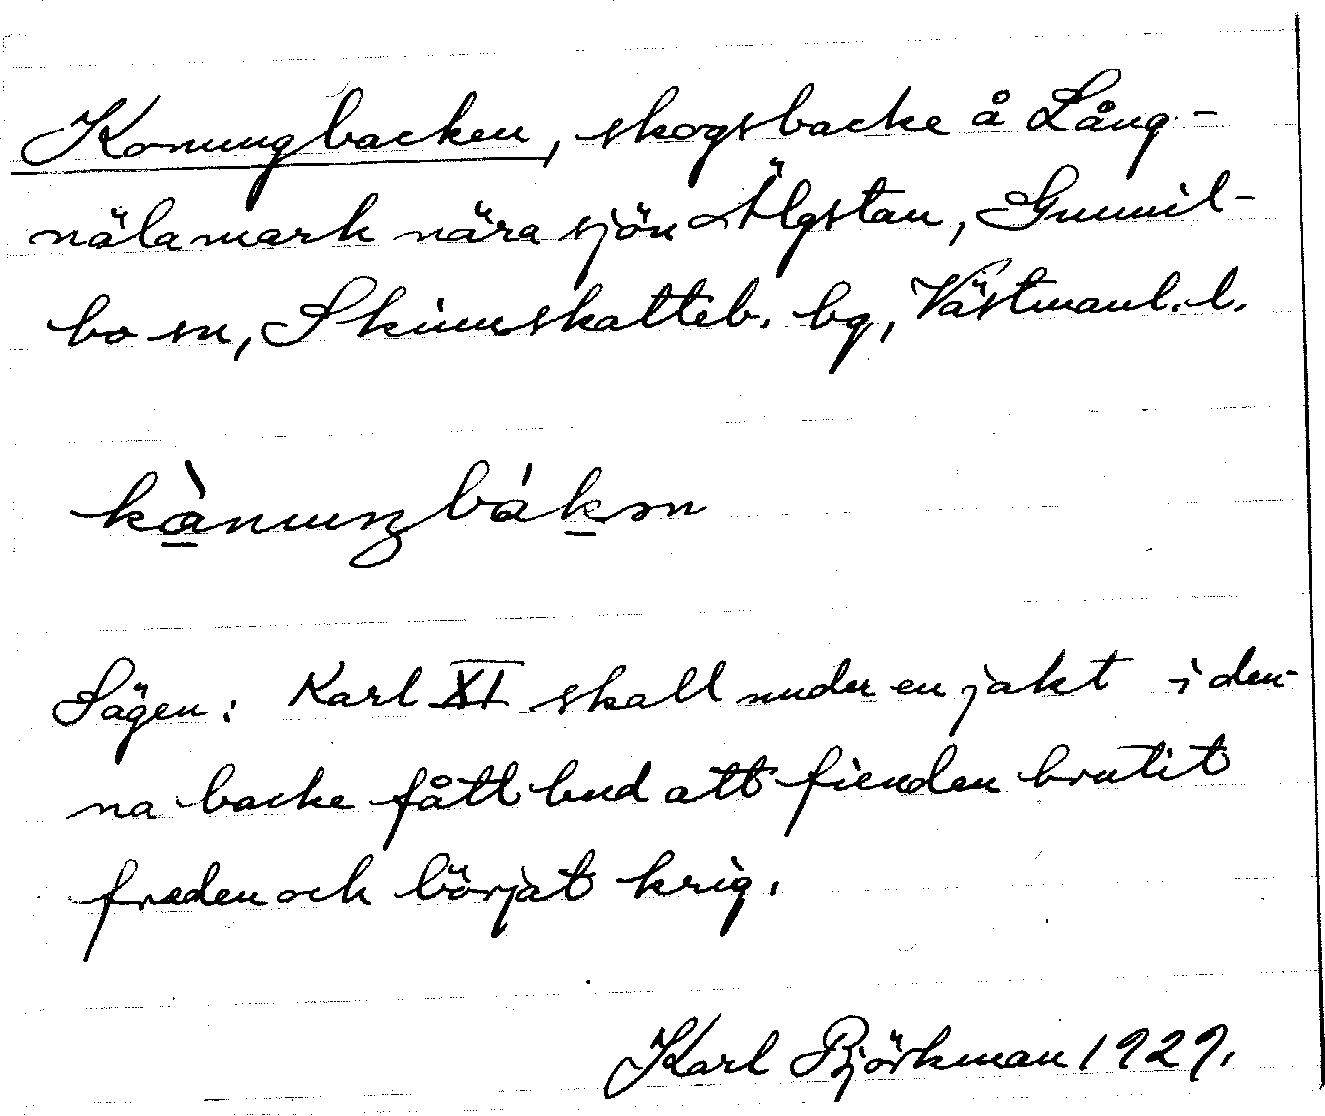 Konungbacken, skogsbacke å Lång-
näla mark nära sjön Älgstan, Gunnil-
bo sn, Skinnskatteb. bg, Västmanl. l.
kànuŋbákən
Sägen: Karl XI skall under en jakt i den-
na backe fått bud att fienden brutit
freden och börjat krig.
Karl Björkman 1929.